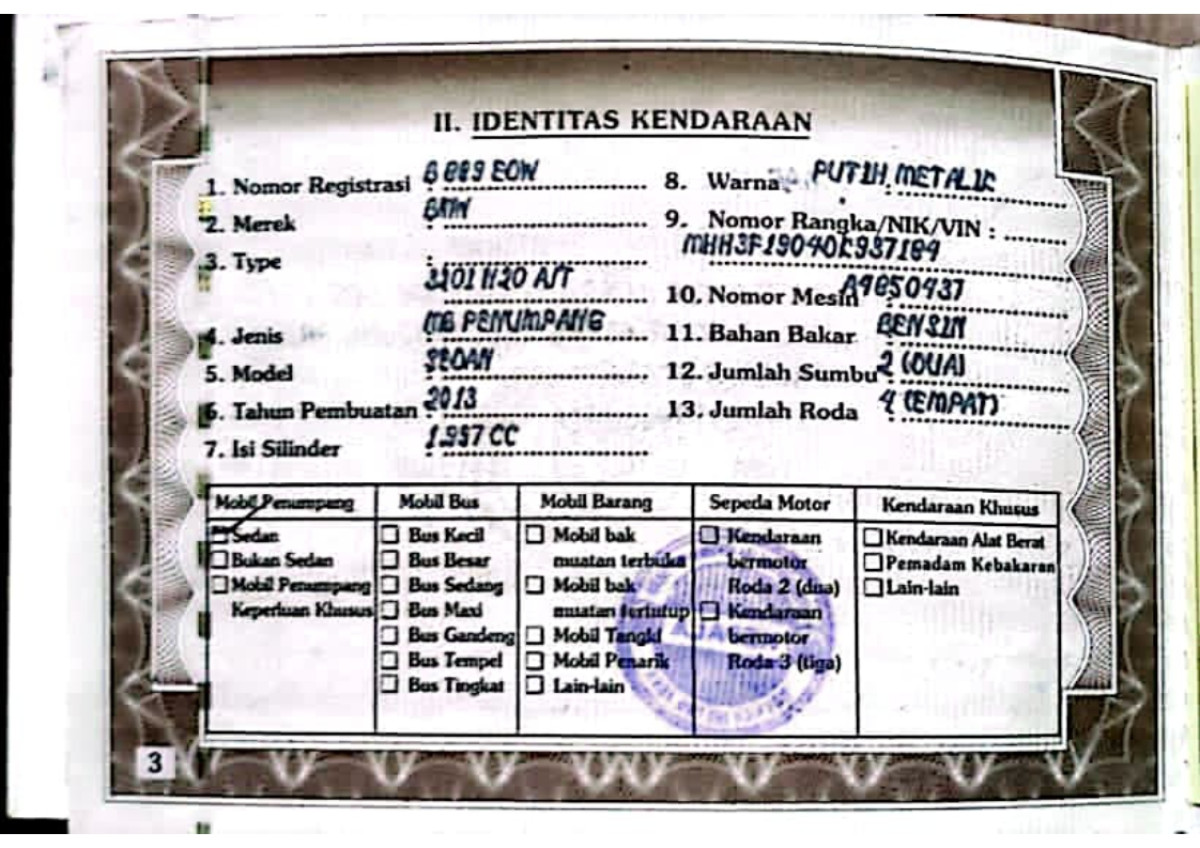 II. IDENTITAS KENDARAAN
1. Nomor Registrasi : B 889 EOW
2. Merek : BMW
3. Type :
320I N20 A/T
4. Jenis : MB PENUMPANG
5. Model : SEDAN
6. Tahun Pembuatan : 2013
7. Isi Silinder : 1.997 CC
8. Warna : PUTIH METALIK
9. Nomor Rangka/NIK/VIN :
10. Nomor Mesin : A9850437
11. Bahan Bakar : BENSIN
12. Jumlah Sumbu 2 (DUA)
13. Jumlah Roda : 4 (EMPAT)
Mobil Penumpang
Sedan
Bukan Sedan
Mobil Penumpang
Keperluan Khusus
Mobil Bus
Bus Kecil
Bus Besar
Bus Sedang
Bus Maxi
Bus Gandeng
Bus Tempel
Bus Tingkat
Mobil Barang
Mobil bak
muatan terbuka
Mobil bak
muatan tertutup
Mobil Tangki
Mobil Penarik
Lain-lain
Sepeda Motor
Kendaraan
bermotor
Roda 2 (dua)
Kendaraan
bermotor
Roda 3 (tiga)
Kendaraan Khusus
Kendaraan Alat Berat
Pemadam Kebakaran
Lain-lain
3